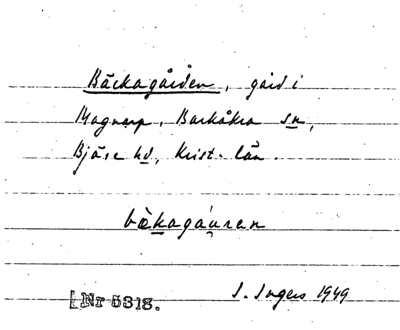 Bäckagården, gård i
Magnarp, Barkåkra sn,
Bjäre hd, Krist. län.
bækagáuran
[Nr 5318.
I. Ingers 1949